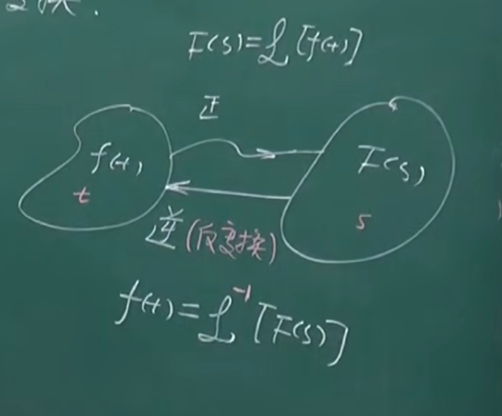 换.
F(s)=ℒ[f(t)]
正
f(t)
F(s)
t
s
逆(反变换)
f(t)=ℒ⁻¹[F(s)]